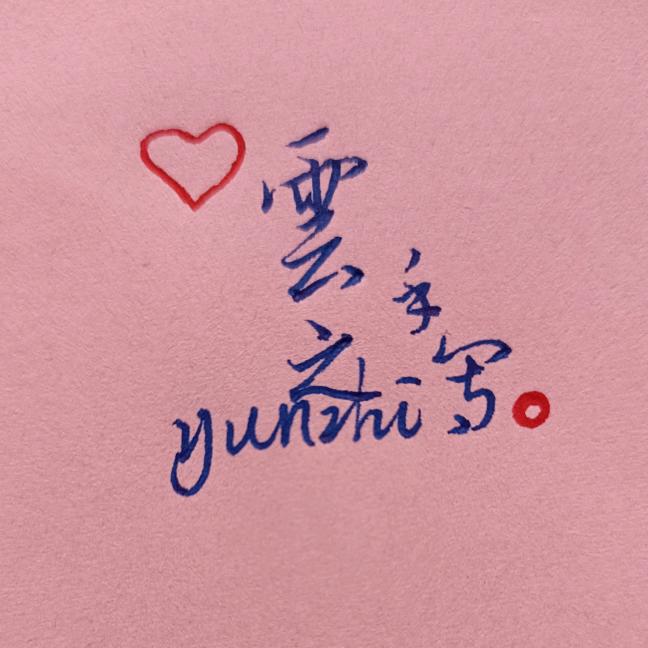 雲之
手写。
yunzhi